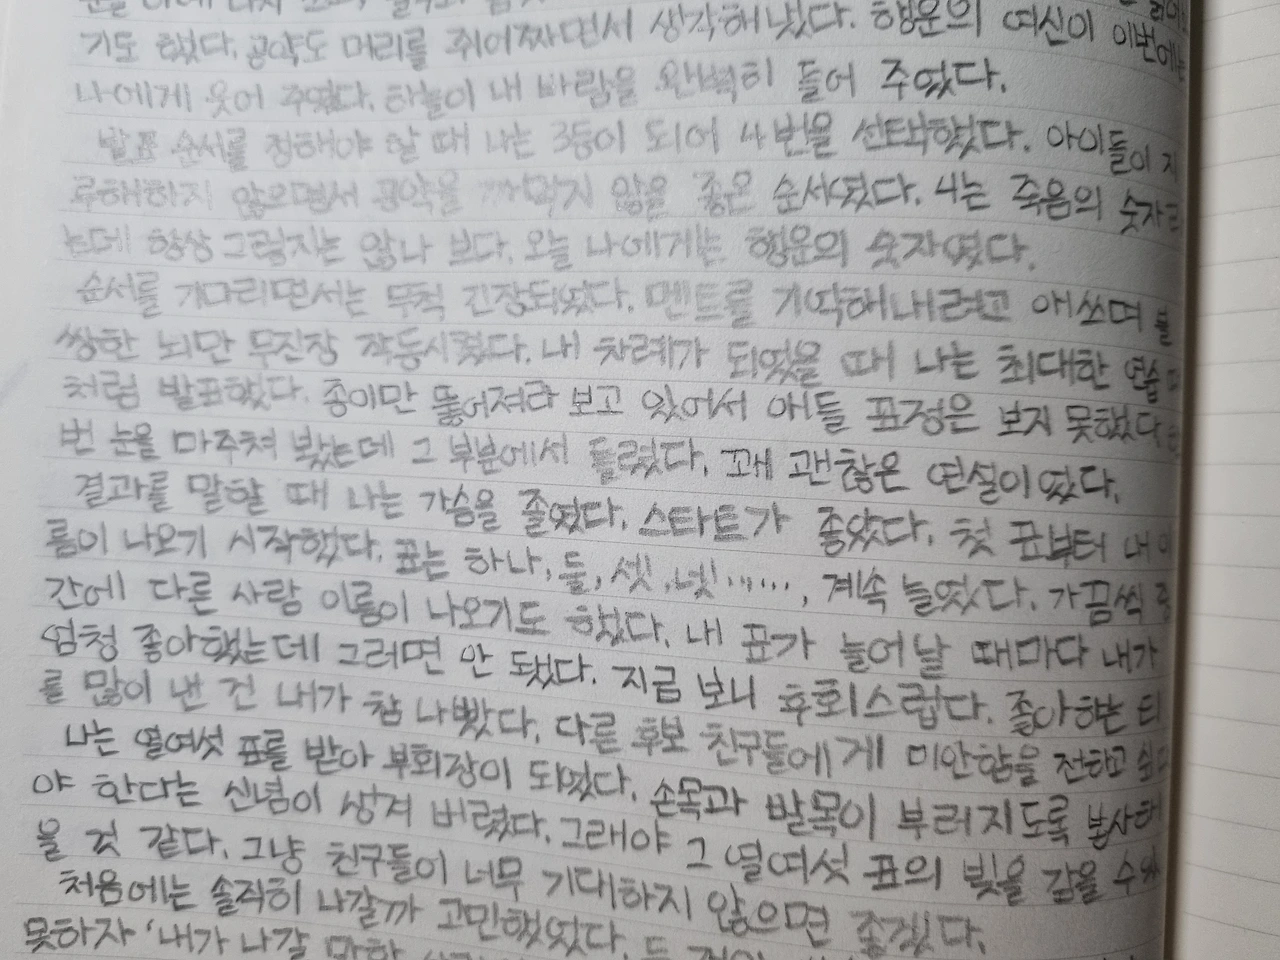 기도 했다. 공약도 머리를 쥐어짜면서 생각해 냈다. 행운의 여신이 이번에는
나에게 웃어 주었다. 하늘이 내 바람을 완벽히 들어 주었다.
발표 순서를 정해야 할 때 나는 3등이 되어 4번을 선택했다. 아이들이 지
루해하지 않으면서 공약을 까먹지 않을 좋은 순서였다. 4는 죽음의 숫자
는데 항상 그렇지는 않나 보다. 오늘 나에게는 행운의 숫자였다.
순서를 기다리면서는 무척 긴장되었다. 멘트를 기억해내려고 애쓰며 불
쌍한 뇌만 무진장 작동시켰다. 내 차례가 되었을 때 나는 최대한 연습
처럼 발표했다. 종이만 뚫어져라 보고 있어서 애들 표정은 보지 못했다
번 눈을 마주쳐 봤는데 그 부분에서 틀렸다. 꽤 괜찮은 연설이었다.
결과를 말할 때 나는 가슴을 졸였다. 스타트가 좋았다. 첫 표부터 내 이
름이 나오기 시작했다. 표는 하나, 둘, 셋, 넷......, 계속 늘었다. 가끔씩 중
간에 다른 사람 이름이 나오기도 했다. 내 표가 늘어날 때마다 내가
엄청 좋아했는데 그러면 안 됐다. 지금 보니 후회스럽다. 좋아하는 티
를 많이 낸 건 내가 참 나빴다. 다른 후보 친구들에게 미안함을 전하고 싶다
나는 열여섯 표를 받아 부회장이 되었다. 손목과 발목이 부러지도록 봉사해
야 한다는 신념이 생겨 버렸다. 그래야 그 열여섯 표의 빚을 갚을 수 있
을 것 같다. 그냥 친구들이 너무 기대하지 않으면 좋겠다.
처음에는 솔직히 나갈까 고민했었다.
못하자 '내가 나갈 만한